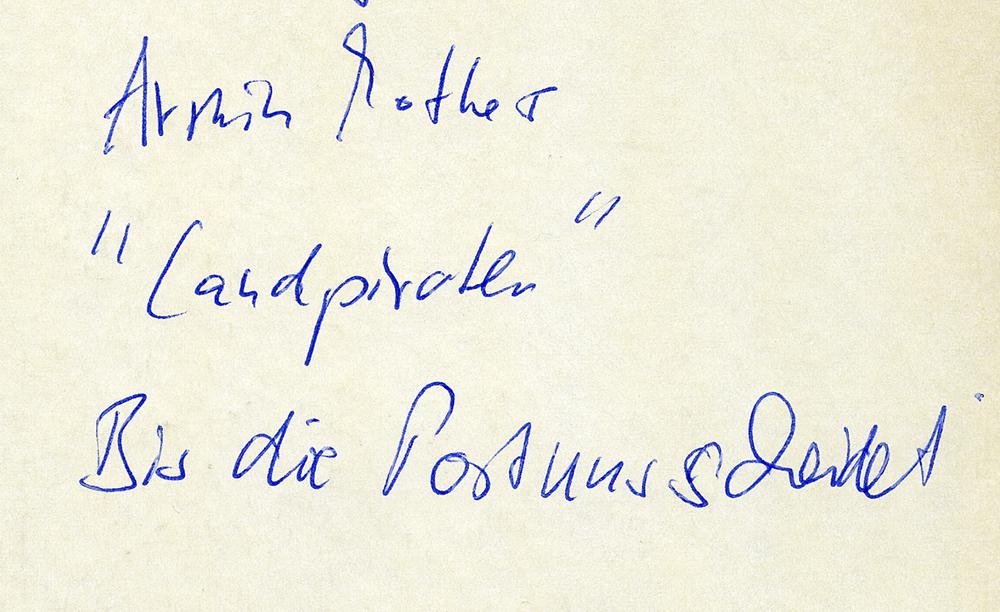 Armin Rother
"Landpiraten"
Bis die Post uns scheidet